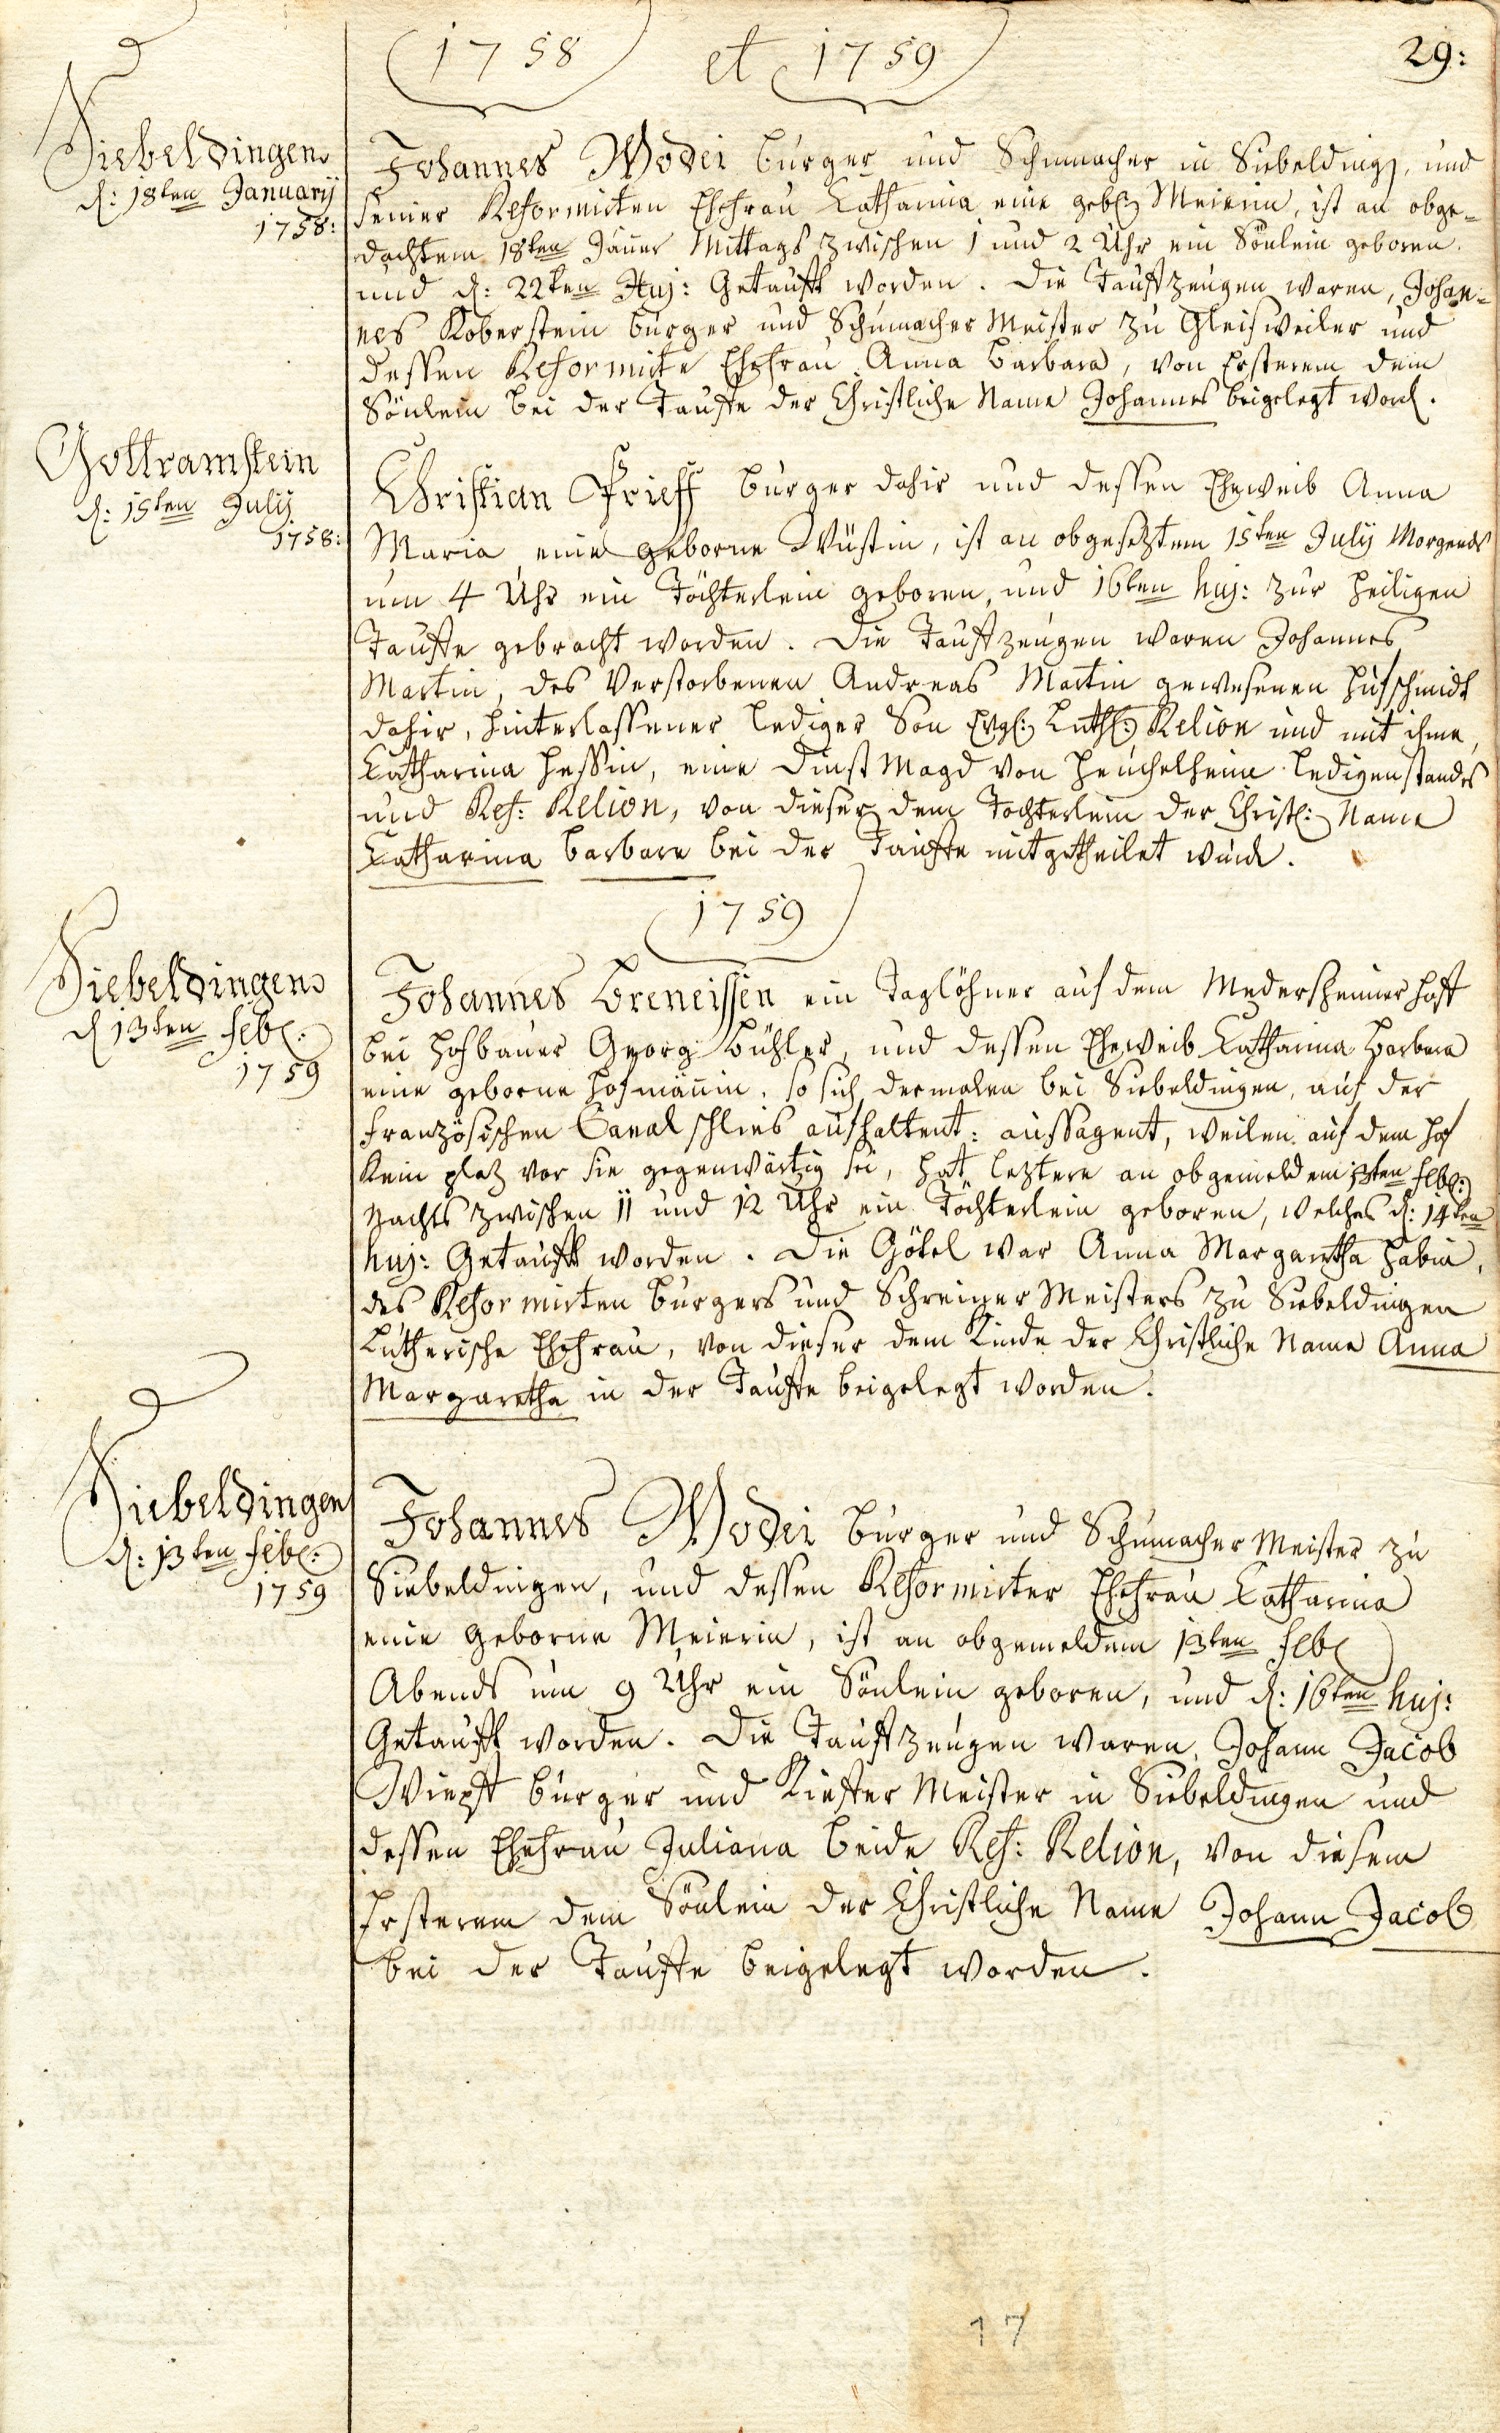 1758 et 1759
29:
Siebeldingen
d: 18ten Januarij
1758:
Johannes Modei burger und Schumacher in Siebelding, und
seiner Reformirten Ehefrau Catharina eine geb: Meierin, ist an obge-
dachtem 18ten Jäner Mittags zwischen 1 und 2 Uhr ein Sönlein geboren
und d: 22ten Huj: Getaufft worden. Die Tauffzeugen waren, Johan-
nes Koberstein burger und Schumacher Meister zu Gleisweiler und
dessen Reformirte Ehefrau Anna Barbara, von Ersterem dem
Sönlein bei der Tauffe der Christliche Name Johannes beigelegt word.
Gottramstein
d: 15ten Julij
1758:
Christian Prieff burger dahir und dessen Eheweib Anna
Maria eine geborne Wüstin, ist an obgesetztem 15ten Julij Morgends
um 4 Uhr ein Töchterlein geboren, und 16ten huj: zur heiligen
Tauffe gebracht worden. Die Tauffzeugen waren Johannes
Martin, des Verstorbenen Andreas Martin gewesenen Hufschmidt
dahir, hinterlassener lediger Son Evgl: Luth: Relion und mit ihme,
Catharina Hessin, eine Dinst Magd von Heuchelheim ledigenstandes
und Ref: Relion, von dieser dem Tochterlein der Christl: Name
Catharina Barbara bei der Tauffe mitgetheilet wurd.
1759
Siebeldingen
d 13ten Feb:
1759
Johannes Breneissen ein Taglöhner auf dem Medersheimer Hoff
bei Hofbauer Georg Bühler, und dessen Eheweib Catharina Barbara
eine geborne Hofmännin, so sich dermalen bei Siebeldingen, auf der
Französischen Canal schlies aufhaltent: aussagent, weilen auf dem Hof
Kein plaz vor sie gegenwärtig sei, hat leztere an obgemeldem 13ten Feb:
Nachts zwischen 11 und 12 Uhr ein Töchterlein geboren, welches d: 14ten
huj: Getaufft worden. Die Götel war Anna Margaretha Habin,
des Reformirten burgers und Schreiner Meisters zu Siebeldingen
Lutherische Ehefrau, von dieser dem Kinde der Christliche Name Anna
Margaretha in der Tauffe beigelegt worden.
Siebeldingen
d: 13ten Feb:
1759
Johannes Modei burger und Schumacher Meister zu
Siebeldingen, und dessen Reformirter Ehefrau Catharina
eine geborne Meierin, ist an obgemeldem 13ten Feb
Abends um 9 Uhr ein Sönlein geboren, und d: 16ten huj:
Getaufft worden. Die Tauffzeugen waren, Johann Jacob
burger und Kieffer Meister in Siebeldingen und
dessen Ehefrau Juliana beide Ref: Relion, von diesem
Ersterem dem Sönlein der Christliche Name Johann Jacob
bei der Tauffe beigelegt worden.
17